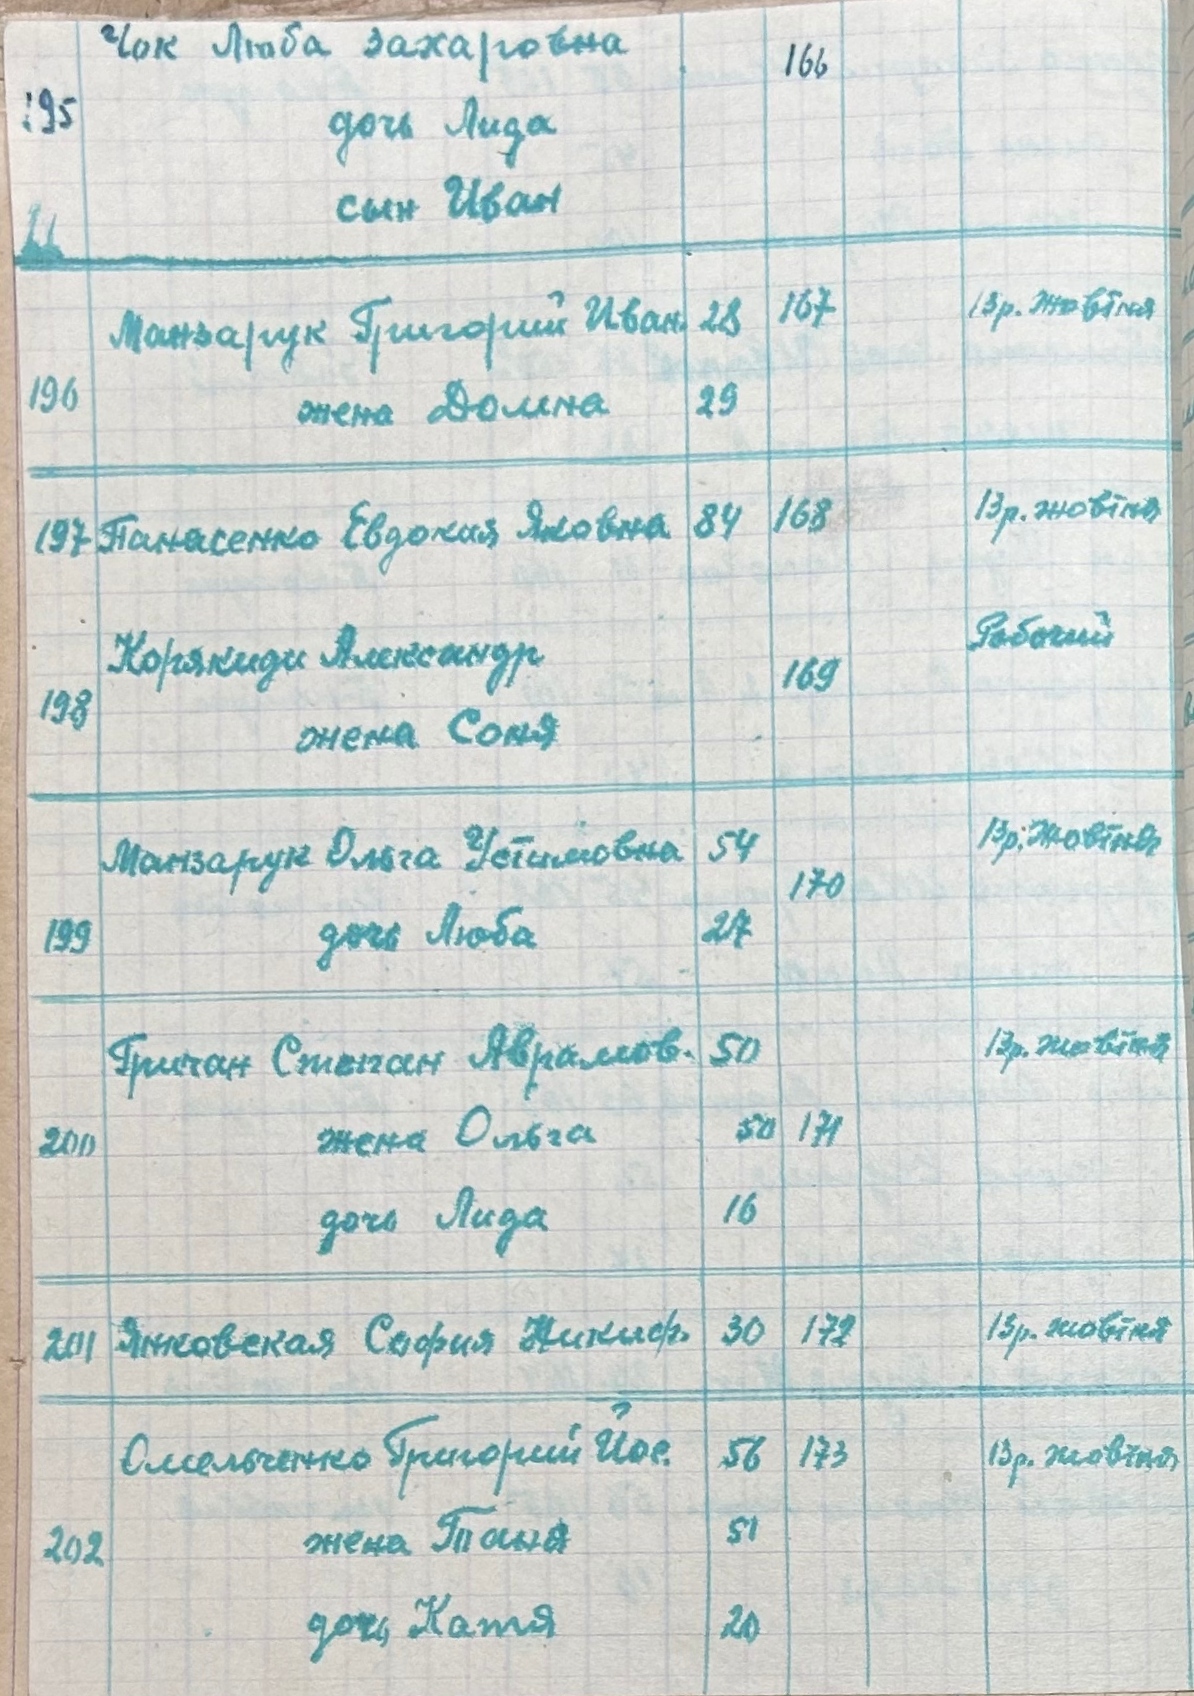 Чок Люба Захаровна 166
195
дочь Лида
сын Иван
Манзарук Григорий Иван. 28 167 13р. Жовтня
196 жена Домна 29
197 Панасенко Евдокия Яковна 84 168 13р. жовтня
Корякиди Александр Рабочий
198 169
жена Соня
Манзарук Ольга Устимовна 54 13р. Жовтня
170
199 дочь Люба 27
Гричан Степан Аврамов. 50 13р. жовтня
200 жена Ольга 50 171
дочь Лида 16
201 Янковская София Никиф. 30 172 13р. жовтня
Омельченко Григорий Йос. 56 173 13р. жовтня
202 жена Таня 51
дочь Катя 20